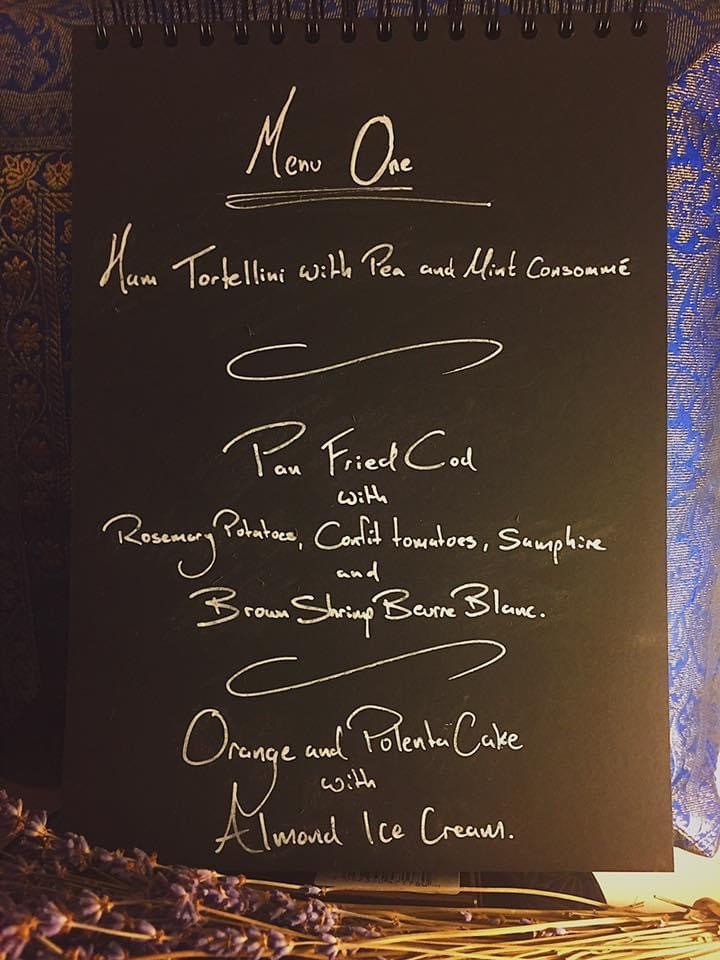 Menu One
Ham Tortellini with Pea and Mint Consommé
Pan Fried Cod
with
Rosemary Potatoes, Confit tomatoes, Samphire
and
Brown Shrimp Beurre Blanc.
Orange and Polenta Cake
with
Almond Ice Cream.